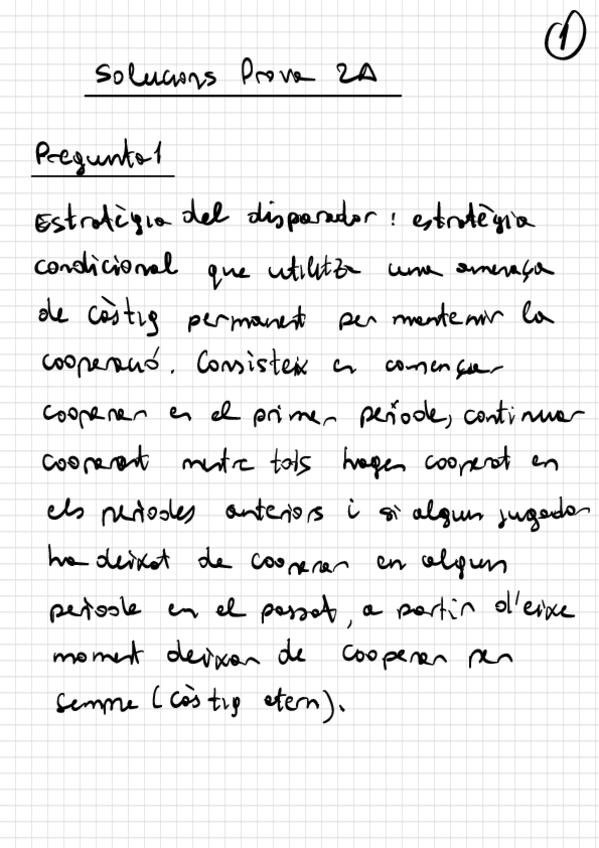 1
Solucions Prova 2A
Pregunta 1
Estratègia del disparador: estratègia
condicional que utilitza una amenaça
de càstig permanent per mantenir la
cooperació. Consisteix en començar
cooperar en el primer període, continuar
cooperant mentre tots hagen cooperat en
els períodes anteriors i si algun jugador
ha deixat de cooperar en algun
període en el passat, a partir d'eixe
moment deixar de cooperar per
sempre (càstig etern).